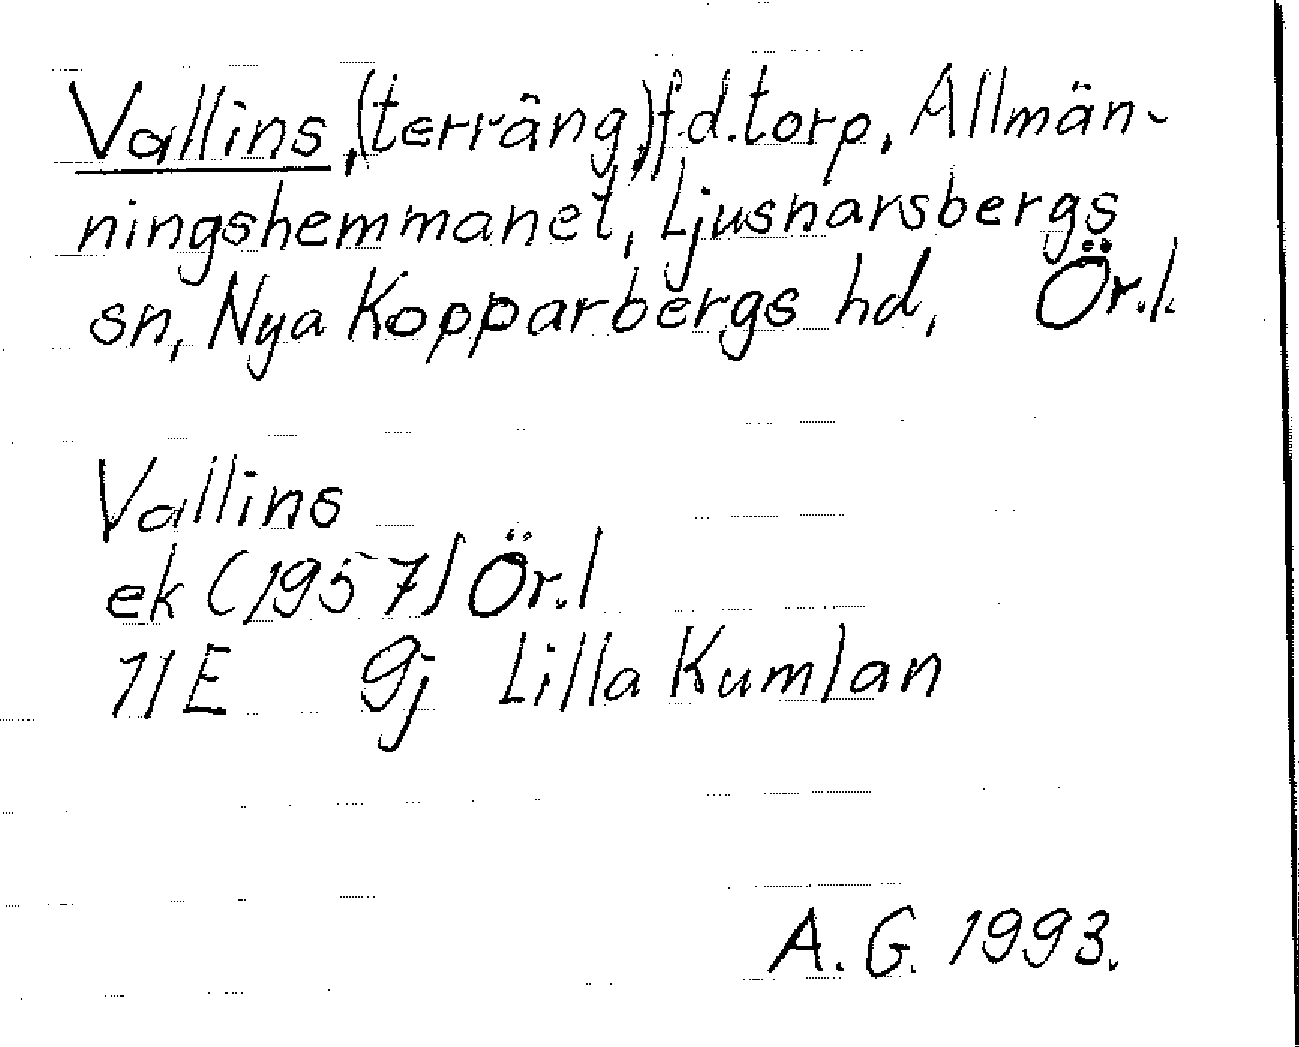 Vallins, (terräng,) f.d. torp, Allmän-
ningshemmanet, Ljusnarsbergs
sn, Nya Kopparbergs hd, Ör.l.
Vallins
ek (1957) Ör.l
11E 9j Lilla Kumlan
A.G. 1993.